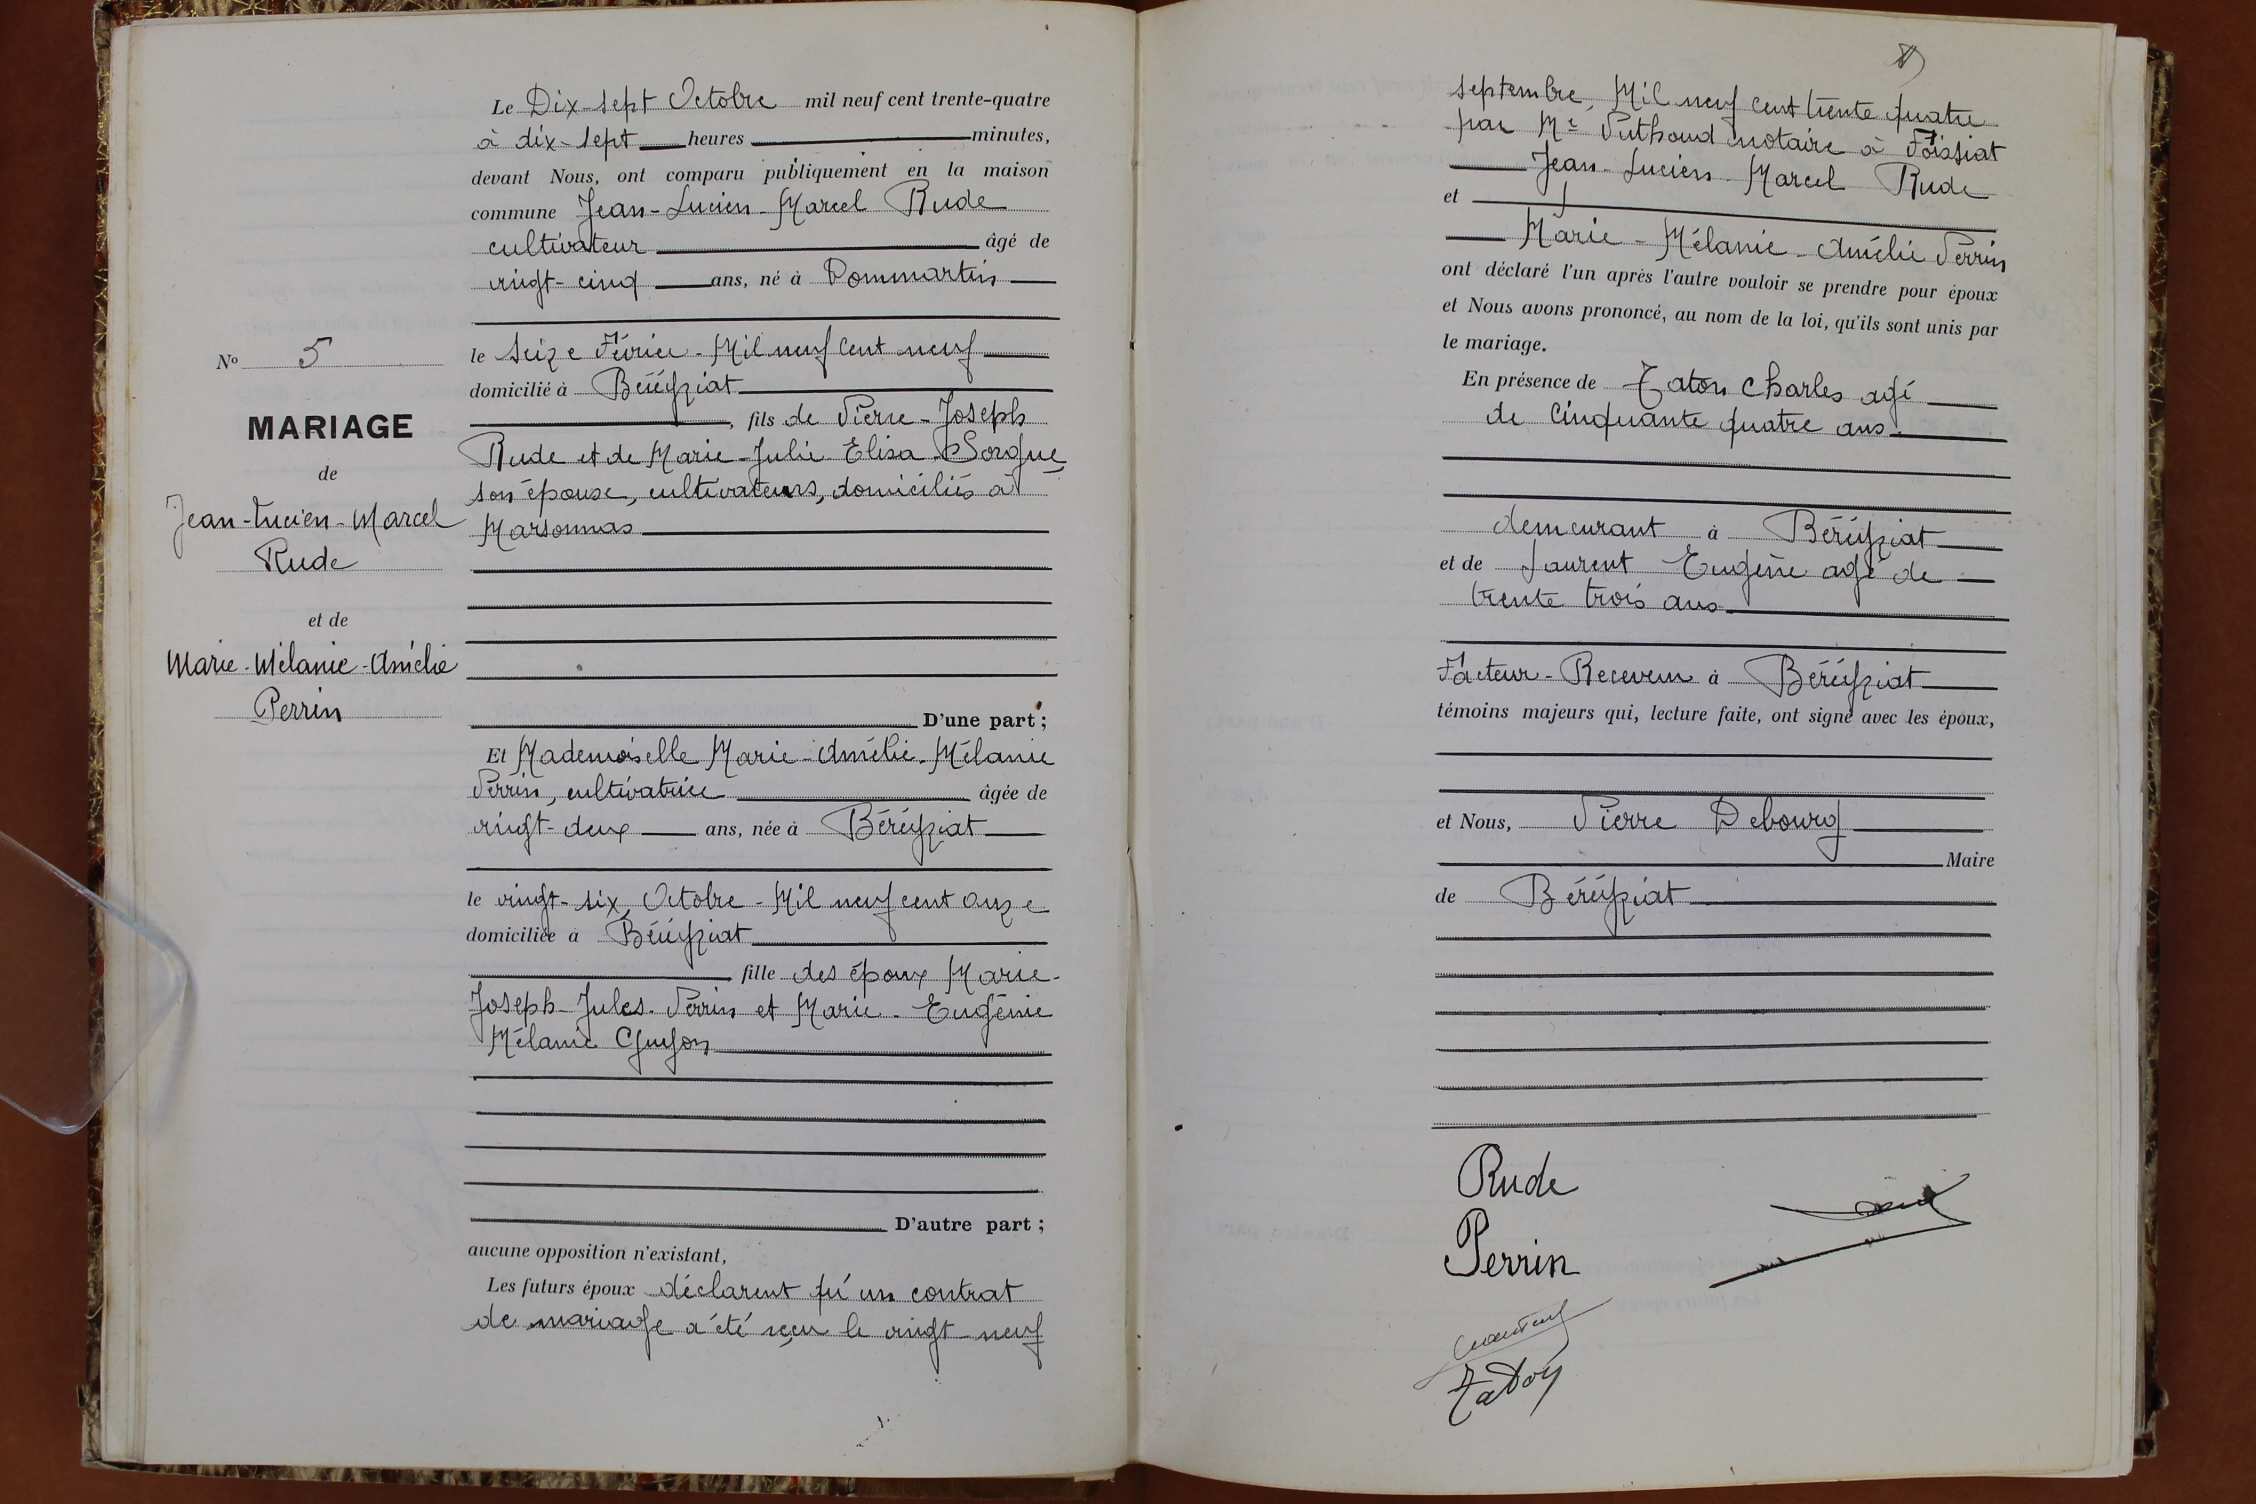 Le Dix-sept Octobre mil neuf cent trente-quatre
à dix-sept heures minutes,
devant Nous, ont comparu publiquement en la maison
commune Jean-Lucien-Marcel Rude
cultivateur âgé de
vingt-cinq ans, né à Dommartin
le seize Février-Mil neuf cent neuf
domicilié à Béréyziat
, fils de Pierre-Joseph
Rude et de Marie-Julie Elisa
son épouse, cultivateurs, domiciliés à
Marsonnas
D'une part ;
Et Mademoiselle Marie-Amélie-Mélanie
Perrin, cultivatrice âgée de
vingt-deux ans, née à Béréyziat
le vingt-six Octobre-Mil neuf cent onze
domiciliée à Béréyziat
fille des époux Marie-
Joseph-Jules-Perrin et Marie-Eugénie
Mélanie Guyon
D'autre part ;
aucune opposition n'existant,
Les futurs époux déclarent qu'un contrat
de mariage a été reçu le vingt-neuf
N° 5
MARIAGE
de
Jean-Lucien-Marcel
Rude
et de
Marie-Mélanie-Amélie
Perrin
septembre, Mil neuf cent trente quatre
par Me Puthoud notaire à Foissiat
Jean-Lucien-Marcel Rude
et
Marie-Mélanie-Amélie Perrin
ont déclaré l'un après l'autre vouloir se prendre pour époux
et Nous avons prononcé, au nom de la loi, qu'ils sont unis par
le mariage.
En présence de Taton Charles agé
de cinquante quatre ans
demeurant à Béréyziat
et de Laurent Eugène agé de
trente trois ans
Facteur-Receveur à Béréyziat
témoins majeurs qui, lecture faite, ont signé avec les époux,
et Nous, Pierre Debourg
Maire
de Béréyziat
Rude
Perrin
Taton